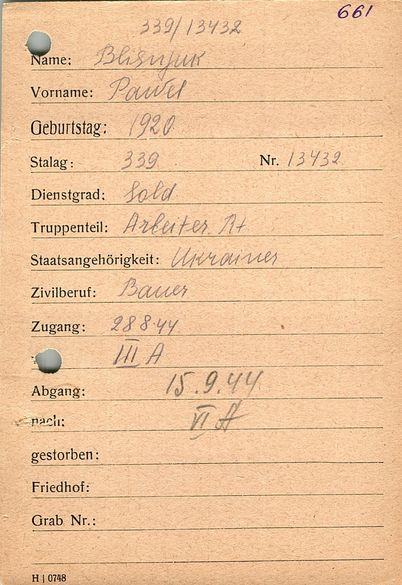 339/13432
661
Name: Blisnjuk
Vorname: Pawel
Geburtstag: 1920
Stalag: 339 Nr. 13432
Dienstgrad: Sold
Truppenteil: Arbeiter. Bt
Staatsangehörigkeit: Ukrainer
Zivilberuf: Bauer
Zugang: 28 8 44
III A
Abgang: 15.9.44
nach: VI A
gestorben:
Friedhof:
Grab Nr.:
H | 0748